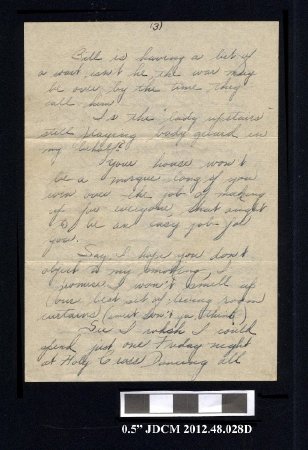 (3)
Bill is having a bit of
a wait, isn't he, the war may
be over by the time they
call him.
Is the "lady upstairs"
still playing body guard in
my behalf?
Your house won't
be a morgue long if you
win over the job of making
of for everyone, that ought
to be an easy job for
you.
Say, I hope you don't
object to my smoking, I
promise I won't smell up
your best set of living room
curtains (must don't ya think)
Gee I wish I could
spend just one Friday night
at Holy Cross Dancing all
0.5" JDCM 2012.48.028D